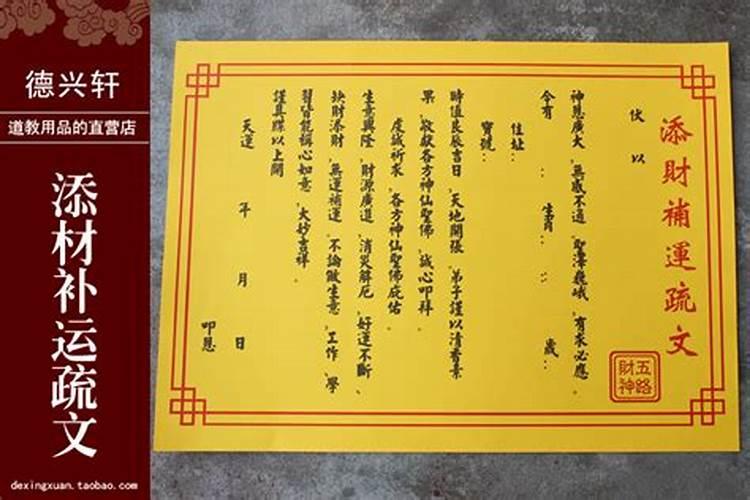 德兴轩
道教用品的直营店
添材补运疏文
dexingxuan.taobao.com
添財補運疏文
五路財神
伏以
神恩廣大、無感不通、聖澤巍峨、有求必應。
今有:生肖::歲、
住址:
寶號:
時值良辰吉日、天地開張、弟子謹以清香素
果、敬獻各方神仙聖佛、誠心叩拜。
虔誠祈求、各方神仙聖佛庇佑。
生意興隆、財源廣進、消災解厄、好運不斷、
缺財添財、無運補運、不論做生意、工作、學
習皆能稱心如意、大抄吉祥。
謹具牒以上聞
天運 年 月 日
叩恩